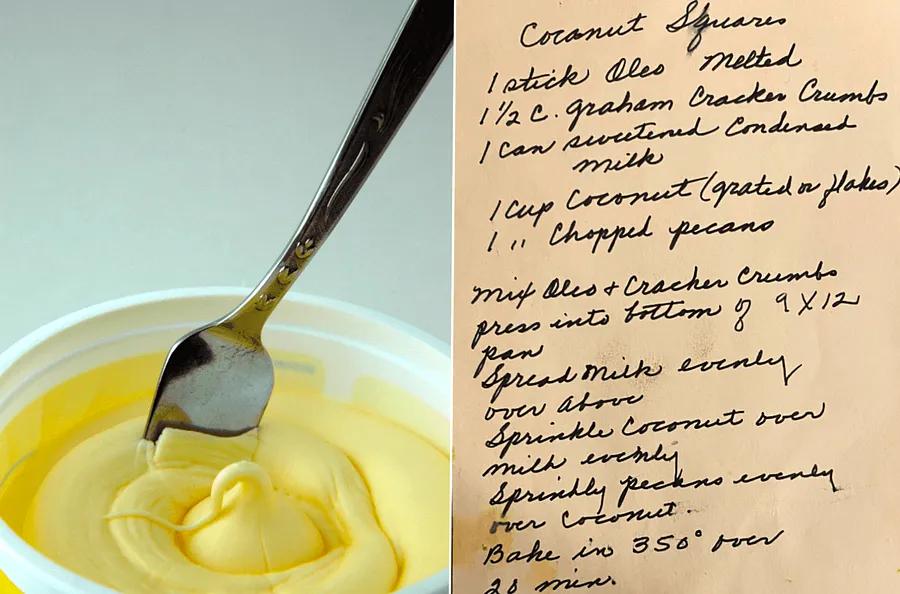 Coconut Squares
1 stick Oleo Melted
1 1/2 C. graham Cracker Crumbs
1 can sweetened Condensed
milk
1 cup Coconut (grated or flakes)
1 " Chopped pecans
Mix Oleo + Cracker Crumbs
press into bottom of 9 X 12
pan
Spread Milk evenly
over above
Sprinkle Coconut over
milk evenly
Sprinkly pecans evenly
over Coconut.
Bake in 350° over
20 min.